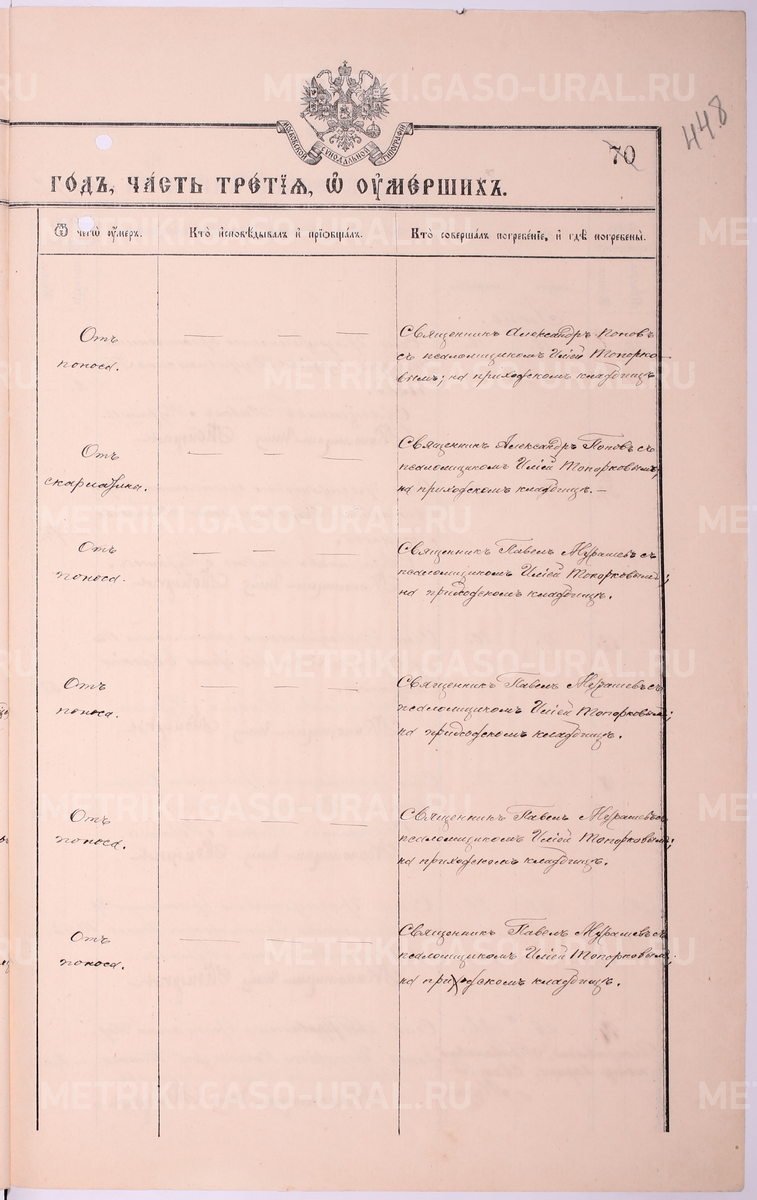 METRIKI.GASO-URAL.RU
МОСКОВСКОЙ СѴНОДАЛЬНОЙ ТИПОГРАФІИ
448
70
ГО́ДЪ, ЧА́СТЬ ТРЕ́ТІѦ, Ѡ҆ ОУ҆МЕ́РШИХЪ.
Ѿ чегѡ̀ ᲂу҆́меръ.
Кто̀ и҆сповѣ́дывалъ и҆ прїѡбща́лъ.
Кто̀ соверша́лъ погребе́нїе, и҆ гдѣ̀ погребены̀.
Отъ
поноса.
Священникъ Александръ Поповъ
съ псаломщикомъ Иліей Топорко-
вымъ; на приходскомъ кладбищѣ.
Отъ
скарлатины.
Священникъ Александръ Поповъ съ
псаломщикомъ Иліей Топорковымъ,
на приходскомъ кладбищѣ. –
Отъ
поноса.
Священникъ Павелъ Мурашевъ съ
псаломщикомъ Иліей Топорковымъ;
на приходскомъ кладбищѣ.
Отъ
поноса.
Священникъ Павелъ Мурашевъ съ
псаломщикомъ Иліей Топорковымъ;
на приходскомъ кладбищѣ.
Отъ
поноса.
Священникъ Павелъ Мурашевъ съ
псаломщикомъ Иліей Топорковымъ;
на приходскомъ кладбищѣ.
Отъ
поноса.
Священникъ Павелъ Мурашевъ съ
псаломщикомъ Иліей Топорковымъ;
на приходскомъ кладбищѣ.